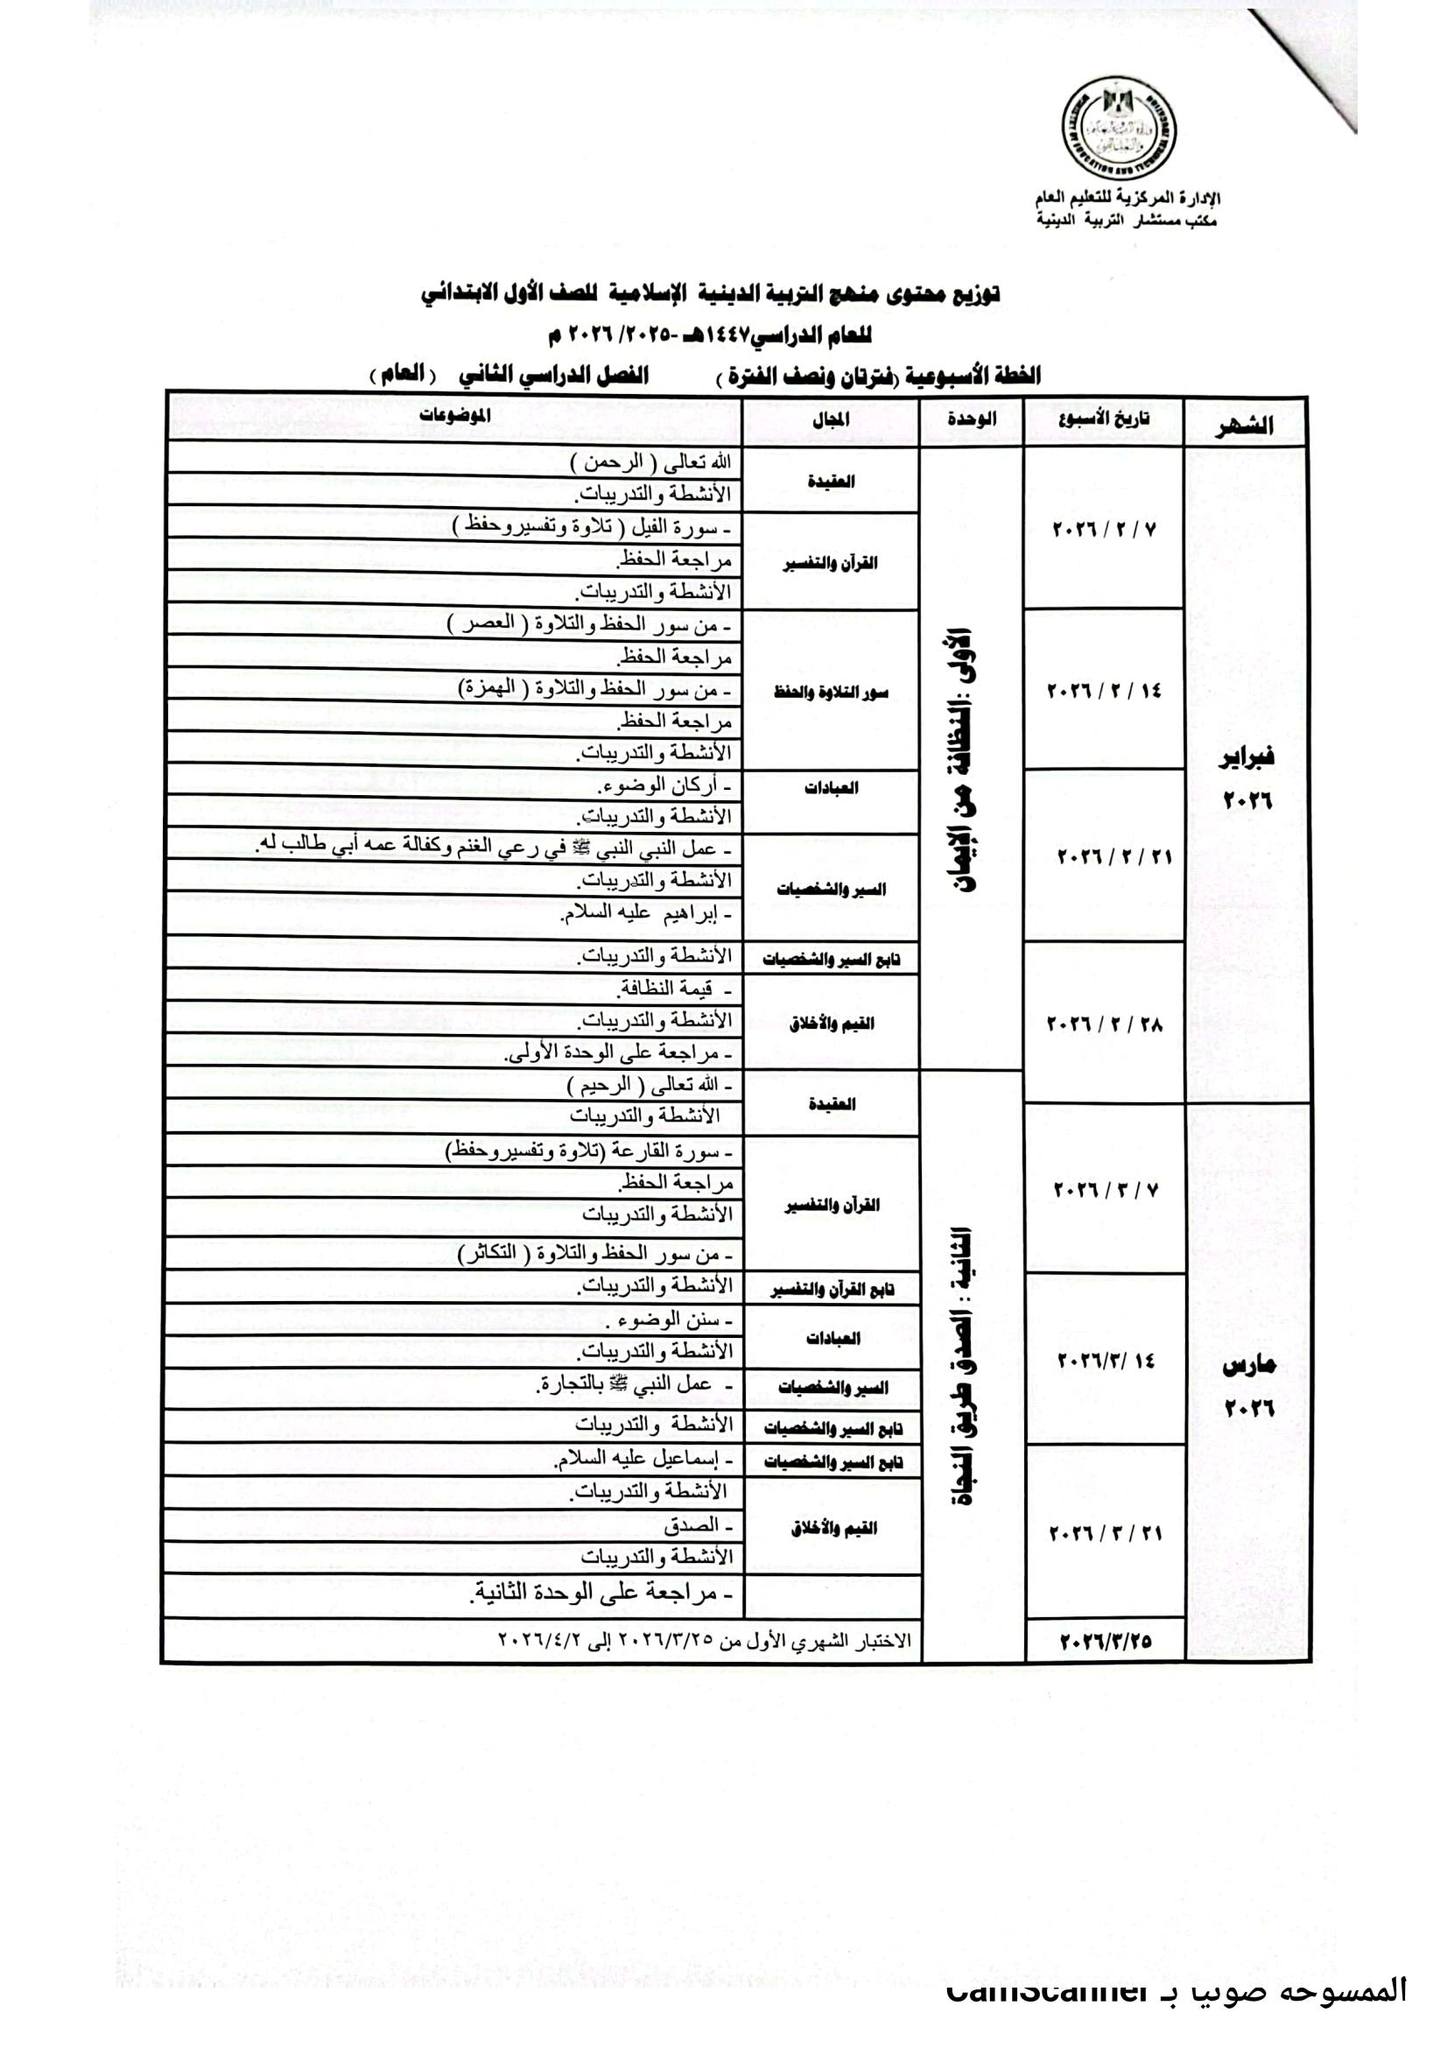 MINISTRY OF EDUCATION AND TECHNICAL EDUCATION
الإدارة المركزية للتعليم العام
مكتب مستشار التربية الدينية
توزيع محتوى منهج التربية الدينية الإسلامية للصف الأول الابتدائي
للعام الدراسي١٤٤٧هـ -٢٠٢٥/ ٢٠٢٦ م
الخطة الأسبوعية (فترتان ونصف الفترة ) الفصل الدراسي الثاني ( العام )
الشهر تاريخ الأسبوع الوحدة المجال الموضوعات
فبراير
٢٠٢٦
الأولى : النظافة من الإيمان
٧ / ٢ / ٢٠٢٦
العقيدة
الله تعالى ( الرحمن )
الأنشطة والتدريبات.
القرآن والتفسير
- سورة الفيل ( تلاوة وتفسيروحفظ )
مراجعة الحفظ.
الأنشطة والتدريبات.
١٤ / ٢ / ٢٠٢٦
سور التلاوة والحفظ
- من سور الحفظ والتلاوة ( العصر )
مراجعة الحفظ.
- من سور الحفظ والتلاوة ( الهمزة)
مراجعة الحفظ.
الأنشطة والتدريبات.
٢١ / ٢ / ٢٠٢٦
العبادات
- أركان الوضوء.
الأنشطة والتدريبات.
السير والشخصيات
- عمل النبي النبي ﷺ في رعي الغنم وكفالة عمه أبي طالب له.
الأنشطة والتدريبات.
- إبراهيم عليه السلام.
٢٨ / ٢ / ٢٠٢٦
تابع السير والشخصيات
الأنشطة والتدريبات.
القيم والأخلاق
- قيمة النظافة.
الأنشطة والتدريبات.
- مراجعة على الوحدة الأولى.
الثانية : الصدق طريق النجاة
العقيدة
- الله تعالى ( الرحيم )
الأنشطة والتدريبات
مارس
٢٠٢٦
٧ / ٣ / ٢٠٢٦
القرآن والتفسير
- سورة القارعة (تلاوة وتفسيروحفظ)
مراجعة الحفظ.
الأنشطة والتدريبات
- من سور الحفظ والتلاوة ( التكاثر )
١٤ /٢٠٢٦/٣
تابع القرآن والتفسير
الأنشطة والتدريبات.
العبادات
- سنن الوضوء .
الأنشطة والتدريبات.
السير والشخصيات
- عمل النبي ﷺ بالتجارة.
تابع السير والشخصيات
الأنشطة والتدريبات
٢١ / ٣ / ٢٠٢٦
تابع السير والشخصيات
- إسماعيل عليه السلام.
القيم والأخلاق
الأنشطة والتدريبات.
- الصدق
الأنشطة والتدريبات
- مراجعة على الوحدة الثانية.
٢٠٢٦/٣/٢٥
الاختبار الشهري الأول من ٢٠٢٦/٣/٢٥ إلى ٢٠٢٦/٤/٢
الممسوحة ضوئيا بـ CamScanner